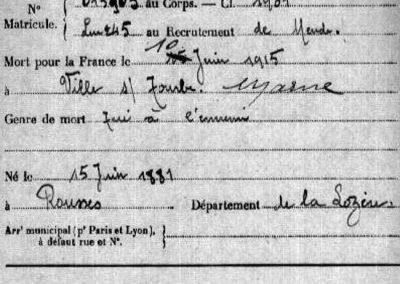 N° 015905 au Corps. — Cl. 1901
Matricule. au Recrutement de Mende.
Mort pour la France le 10 Juin 1915
à Ville s/ Tourbe. Marne
Genre de mort Tué à l'ennemi
Né le 15 Juin 1881
à Rousses Département de la Lozère
Arr' municipal (p' Paris et Lyon),
à défaut rue et N°.